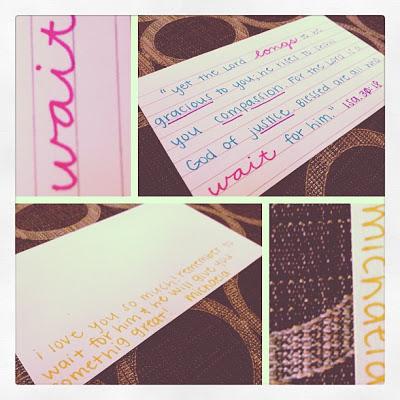 wait
"yet the Lord longs to be
gracious to you; he rises to show
you compassion. For the Lord is a
God of justice. Blessed are all who
wait for him." Isa. 30:18
i love you so much! remember to
wait for him & he will give you
somethig great! michaela
michaela